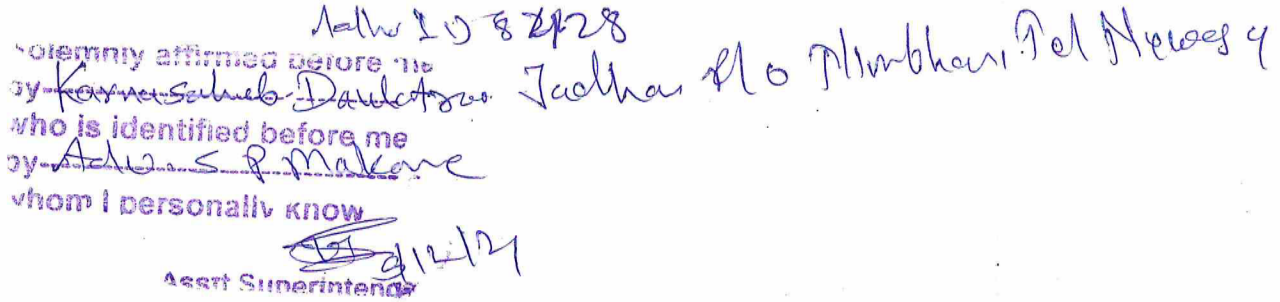 solemnly affirmed before me
by Karnasaheb Daulatrao Jadhav R/o Nimbhari, Tal Newasa
who is identified before me
by Adv. S P Makone
whom I personally know
Asstt Superintendent